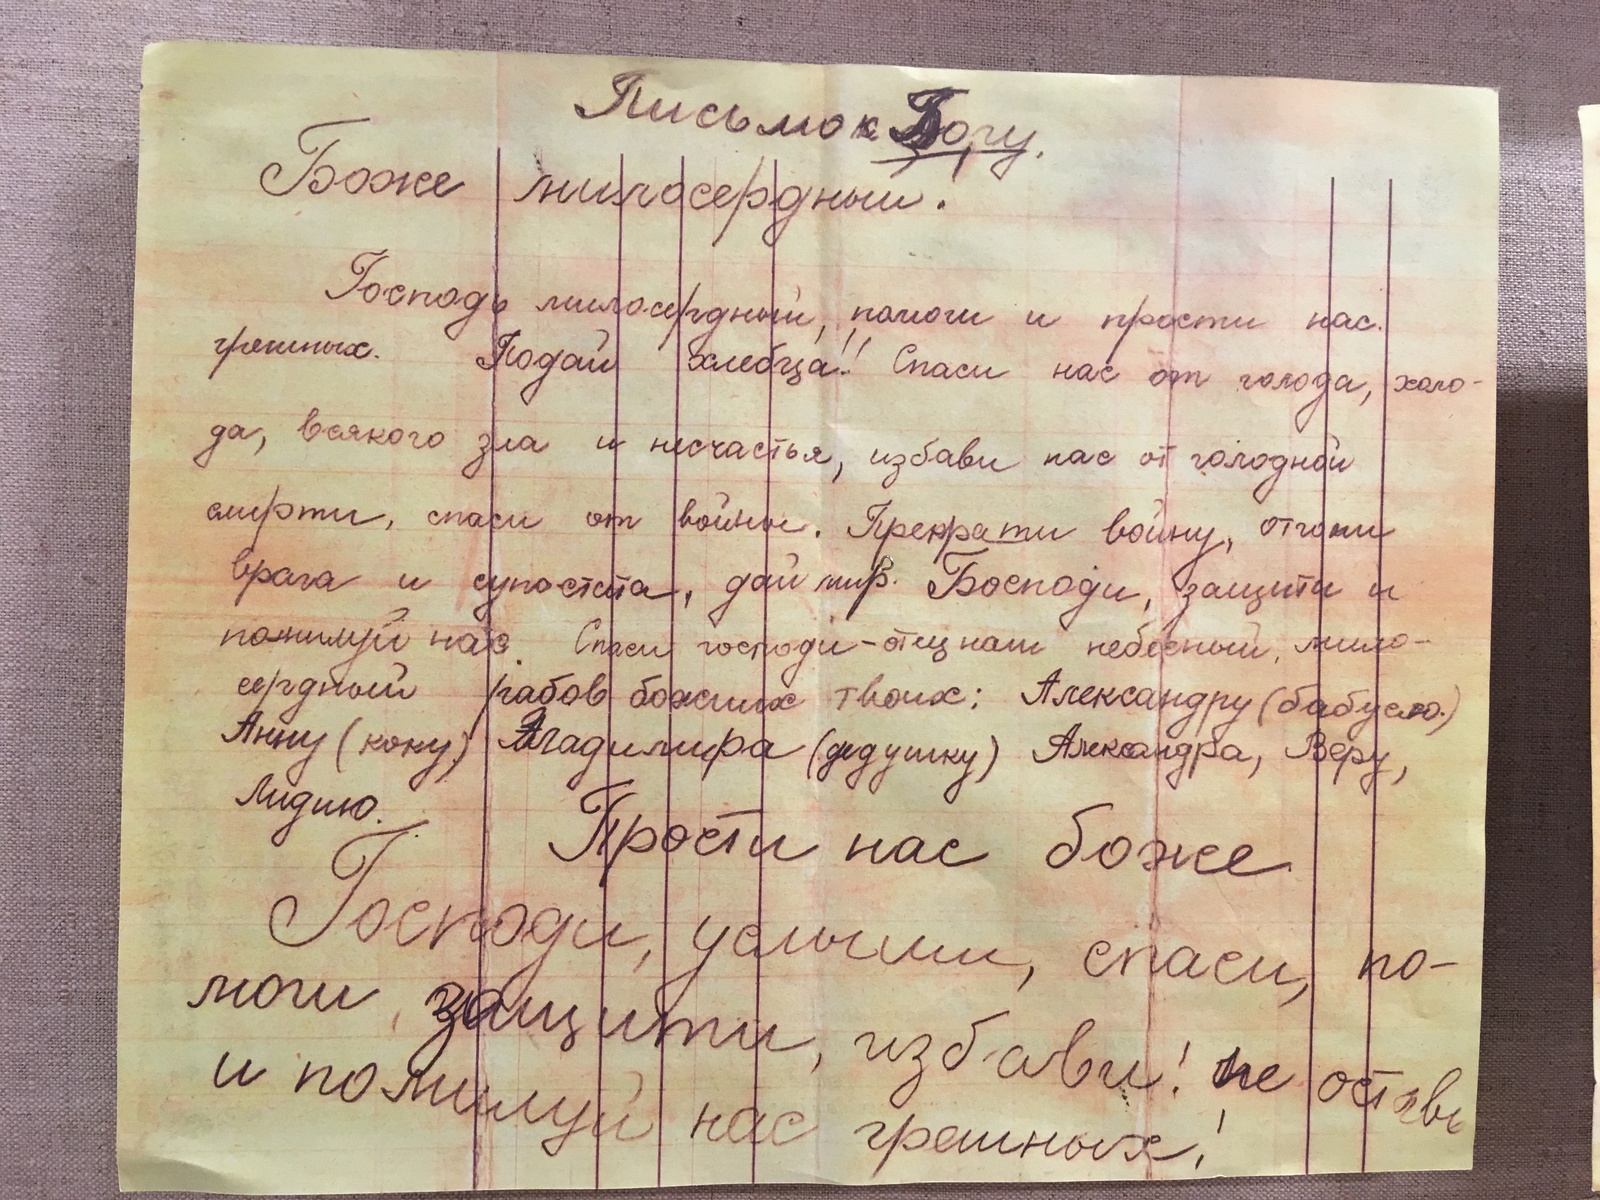 Письмо к Богу.
Боже милосердный!
Господь милосердный, помоги и прости нас
грешных. Подай хлебца!! Спаси нас от голода, холо-
да, всякого зла и несчастья, избави нас от голодной
смерти, спаси от войны. Прекрати войну, отгони
врага и супостата, дай мир. Господи, защити и
помилуй нас. Спаси господи-отец наш небесный, мило-
сердный рабов божиих твоих: Александру (бабусю.)
Анну (коку) Владимира (дедушку) Александра, Веру,
Лидию.
Прости нас боже
Господи, услыши, спаси, по-
моги, защити, избави! не оставь
и помилуй нас грешных!